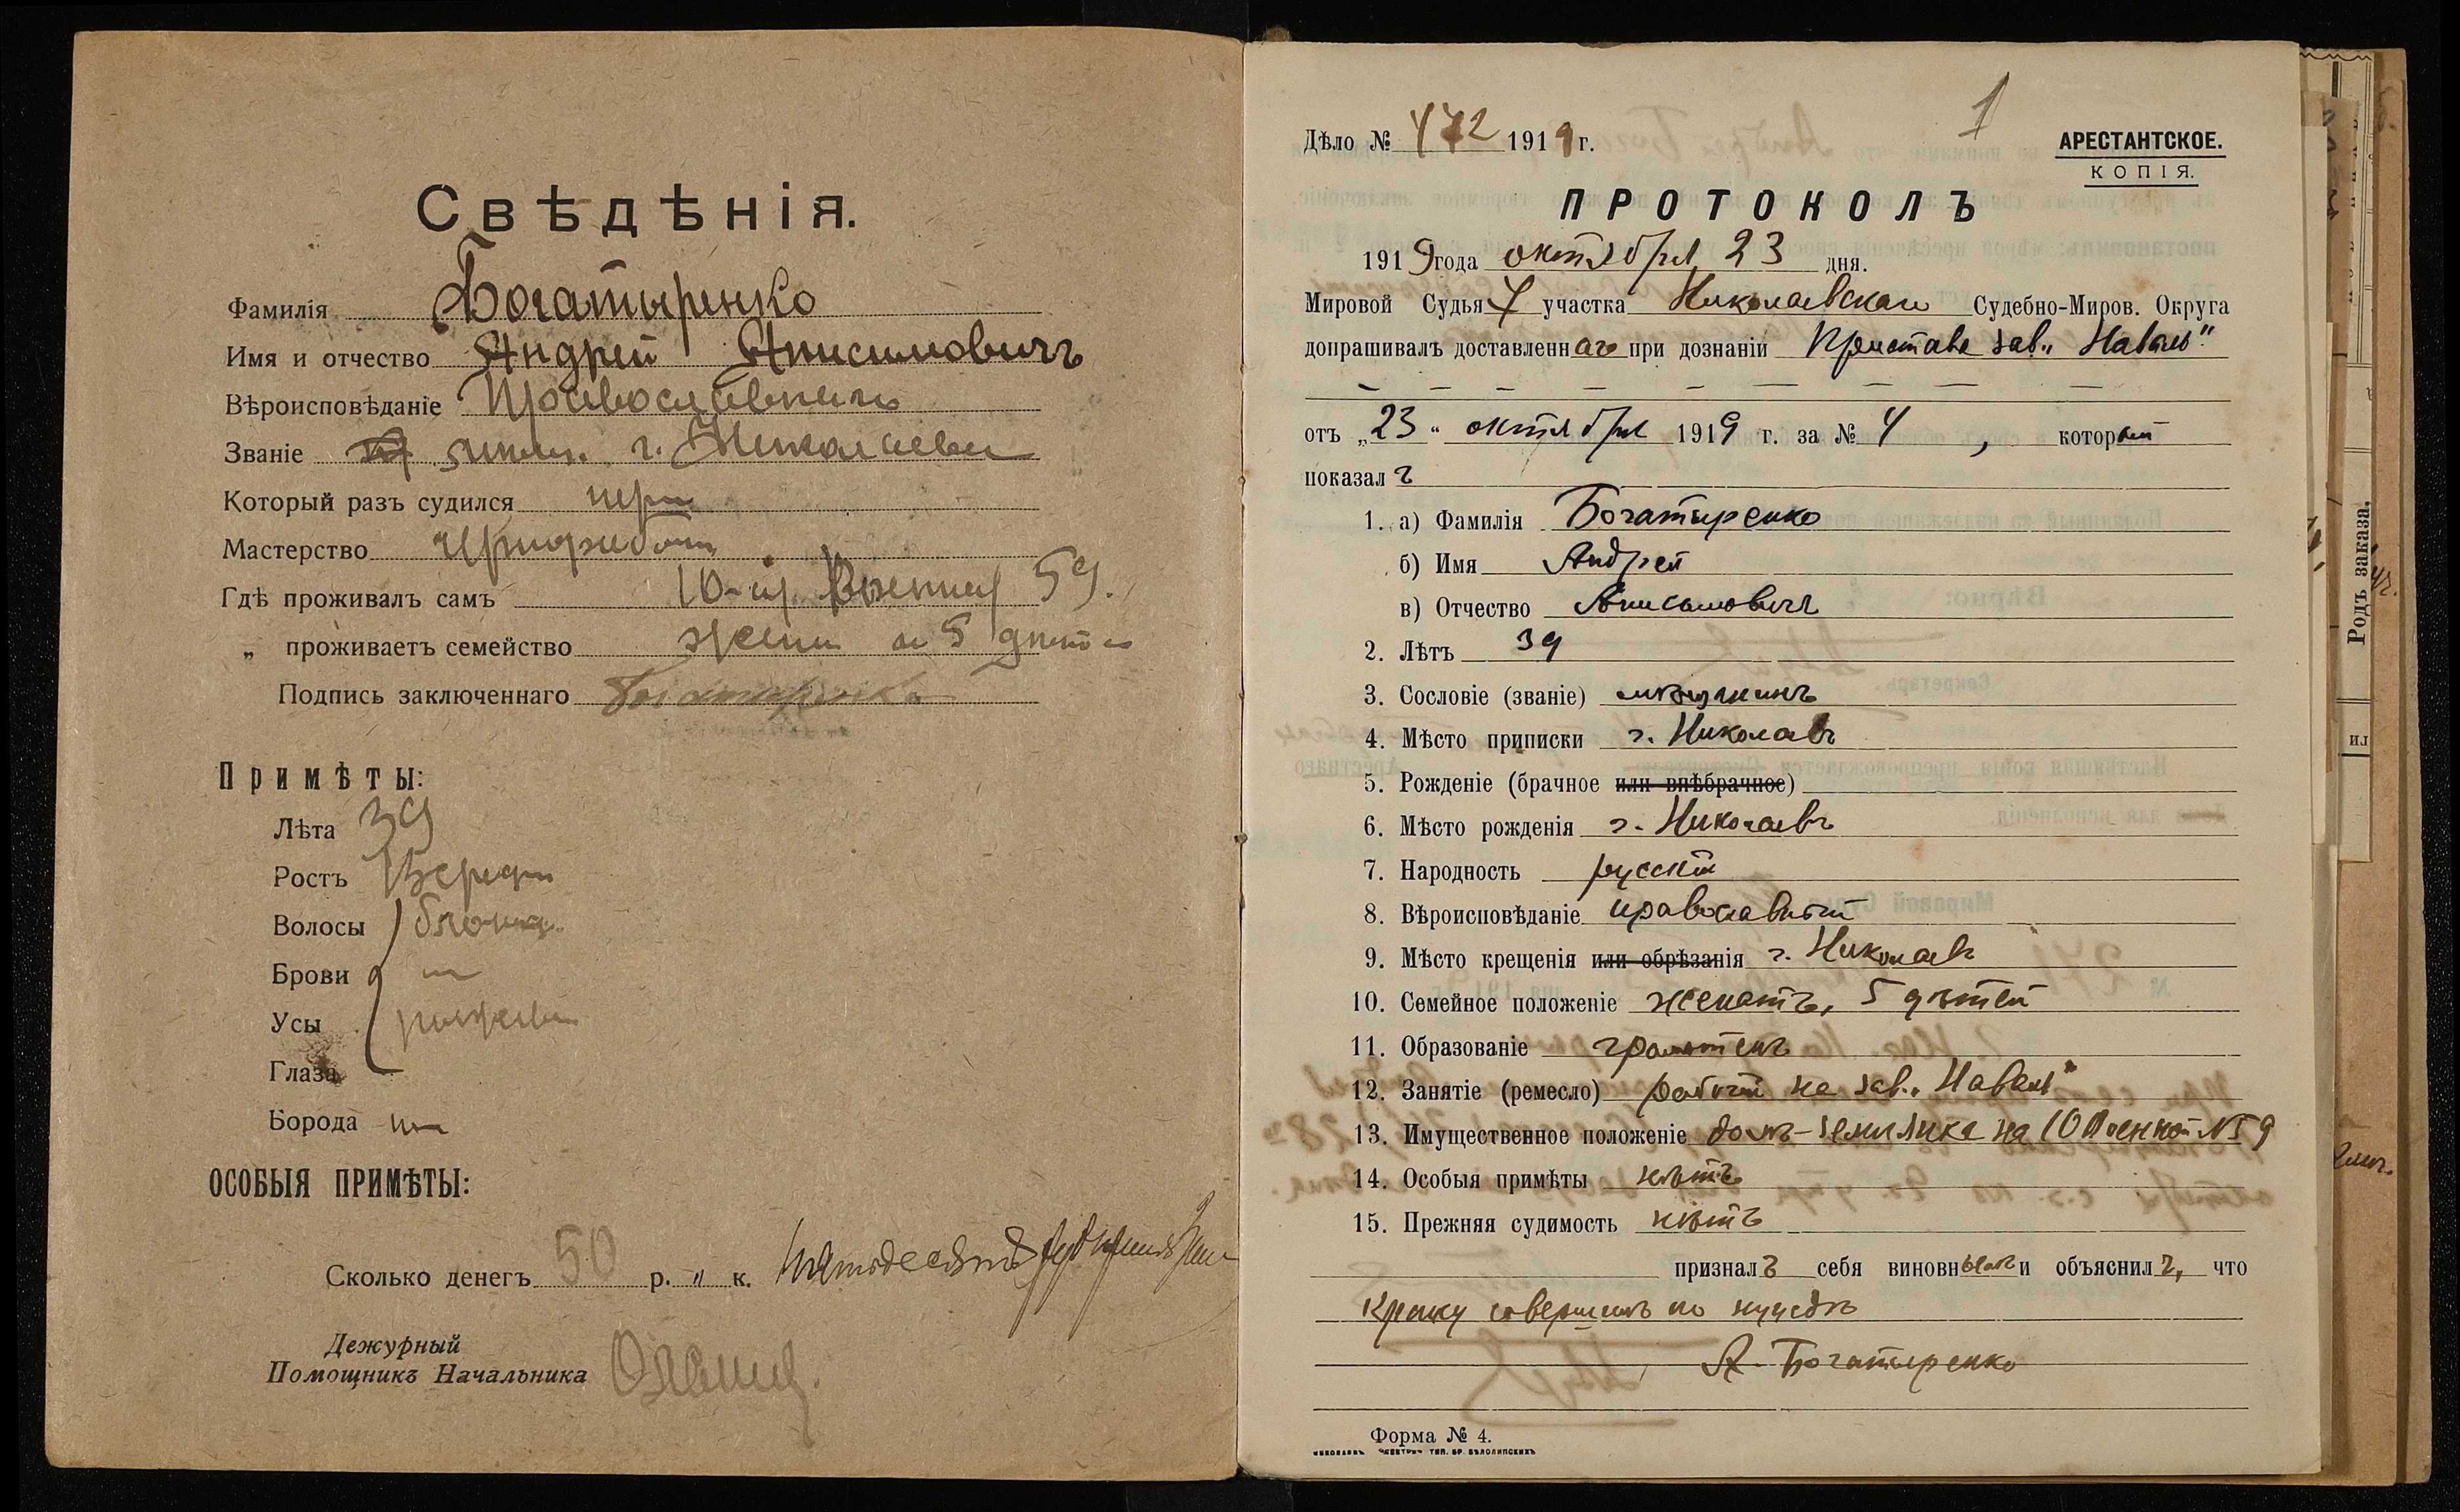 Свѣдѣнія.
Фамилія Богатыренко
Имя и отчество Андрей Анисимовичъ
Вѣроисповѣданіе Православный
Званіе г. Николаева
Который разъ судился перв
Мастерство чернорабоч
Гдѣ проживалъ самъ 10-я Военная 59.
„ проживаетъ семейство жена и 5 дѣтей
Подпись заключеннаго Богатыренко
Примѣты:
Лѣта 39
Ростъ Средн
Волосы блонд.
Брови
Усы рыжеват
Глаза
Борода
ОСОБЫЯ ПРИМѢТЫ:
Сколько денегъ 50 р. „ к. Пятьдесятъ руб
Дежурный
Помощникъ Начальника
1
Дѣло № 472 1919 г.
АРЕСТАНТСКОЕ.
КОПІЯ.
ПРОТОКОЛЪ
1919 года октября 23 дня.
Мировой Судья 4 участка Николаевскаго Судебно-Миров. Округа
допрашивалъ доставленнаго при дознаніи Пристава зав. „Наваль"
отъ „23" октября 1919 г. за № 4, который
показалъ
1. а) Фамилія Богатыренко
б) Имя Андрей
в) Отчество Анисимовичъ
2. Лѣтъ 39
3. Сословіе (званіе) мѣщанинъ
4. Мѣсто приписки г. Николаевъ
5. Рожденіе (брачное или внѣбрачное)
6. Мѣсто рожденія г. Николаевъ
7. Народность русскій
8. Вѣроисповѣданіе православный
9. Мѣсто крещенія или обрѣзанія г. Николаевъ
10. Семейное положеніе женатъ, 5 дѣтей
11. Образованіе грамотенъ
12. Занятіе (ремесло) рабочій на зав. „Наваль"
13. Имущественное положеніе домъ-землянка на 10 Военной № 59
14. Особыя примѣты нѣтъ
15. Прежняя судимость нѣтъ
призналъ себя виновнымъ и объяснилъ, что
Кражу совершилъ по нуждѣ
А. Богатыренко
Форма № 4.
Родъ заказа.